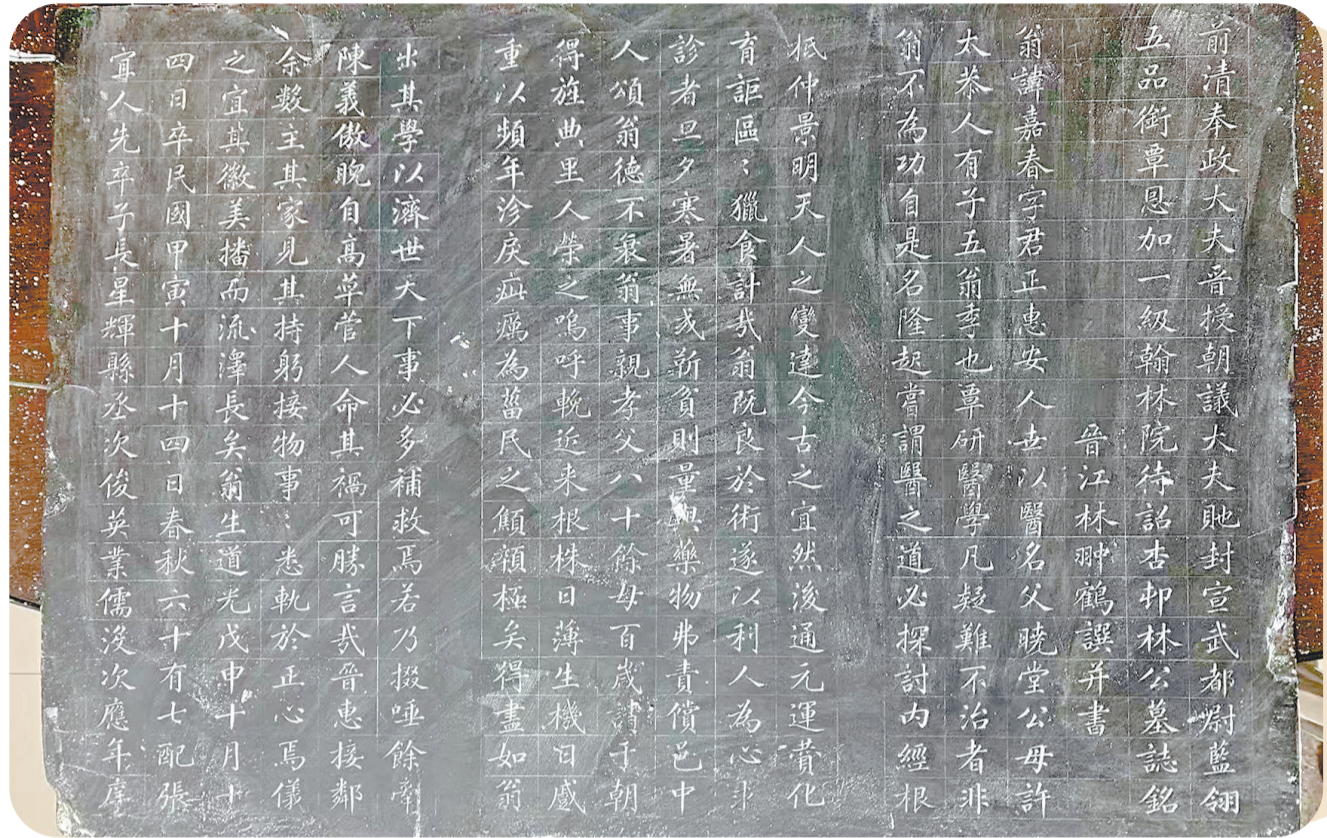 前清奉政大夫晉授朝議大夫貤封宣武都尉藍翎
五品銜覃恩加一級翰林院待詔杏邨林公墓誌銘
晉江林翀鶴譔并書
翁諱嘉春字君正惠安人世以醫名父曉堂公母許
太恭人有子五翁季也覃研醫學凡疑難不治者非
翁不為功自是名隆起嘗謂醫之道必探討內經根
柢仲景明天人之變達今古之宜然後通元運賛化
育詎區〻獵食計哉翁既良於術遂以利人為心求
診者旦夕寒暑無或靳貧則量與藥物弗責償邑中
人頌翁德不衰翁事親孝父八十餘母百歲請于朝
得旌典里人榮之嗚呼輓近来根株日薄生機日蹙
重以頻年沴戾疝癘為菑民之顛顇極矣得盡如翁
出其學以濟世天下事必多補救焉若乃掇唾餘
陳義傲睨自高草菅人命其禍可勝言哉晉惠接鄰
余數主其家見其持躬接物事〻悉軌於正心焉儀
之宜其徽美播而流澤長矣翁生道光戊申十月十
四日卒民國甲寅十月十四日春秋六十有七配張
宜人先卒子長星輝縣丞次俊英業儒沒次應年庠